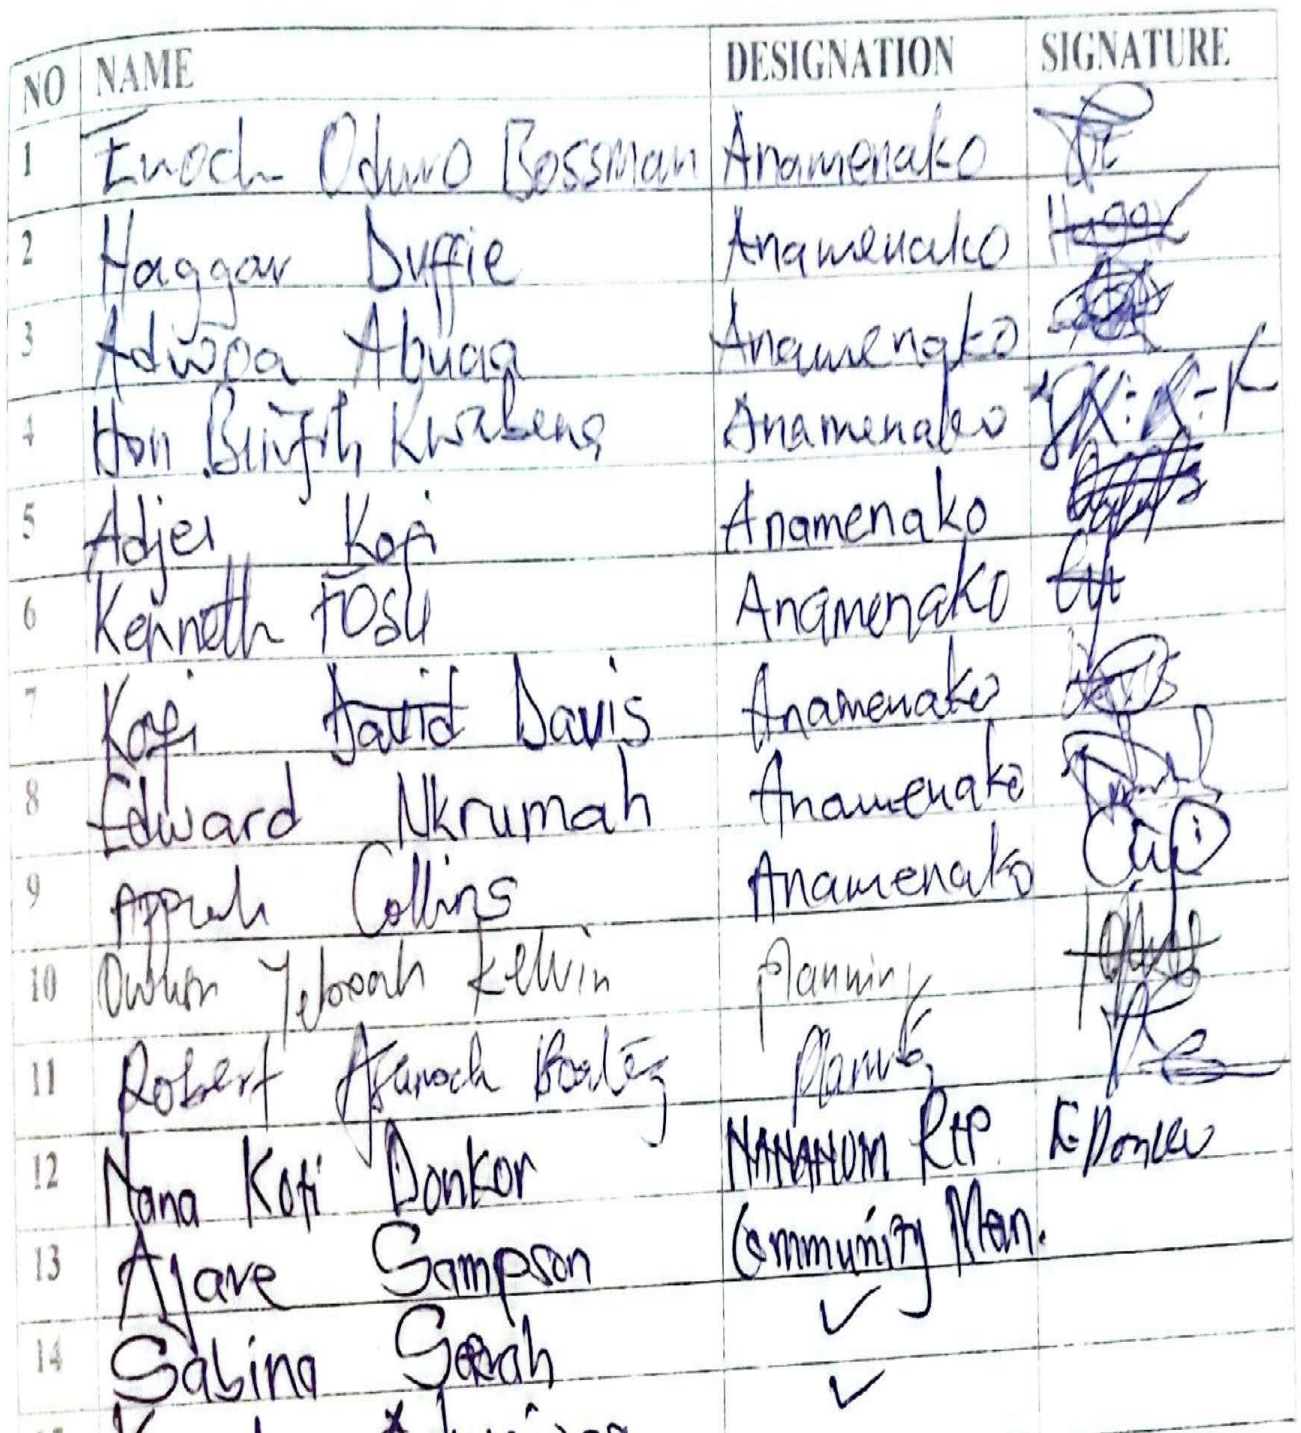 NO NAME DESIGNATION SIGNATURE
1 Enoch Oduro Bossman Anamenako
2 Haggar Duffie Anamenako Haggar
3 Adwoa Abuaa Anamenako
4 Hon Kwabena Anamenako
5 Adjei Kofi Anamenako
6 Kenneth Fosu Anamenako
7 Kofi David Davis Anamenako
8 Edward Nkrumah Anamenako
9 Appiah Collins Anamenako
10 Owusu Yeboah Kelvin Planning
11 Robert Boateng Planning
12 Nana Kofi Donkor NANANOM Rep. K-Donkor
13 Ajare Sampson Community Man.
14 Sabina Serah ✓
✓